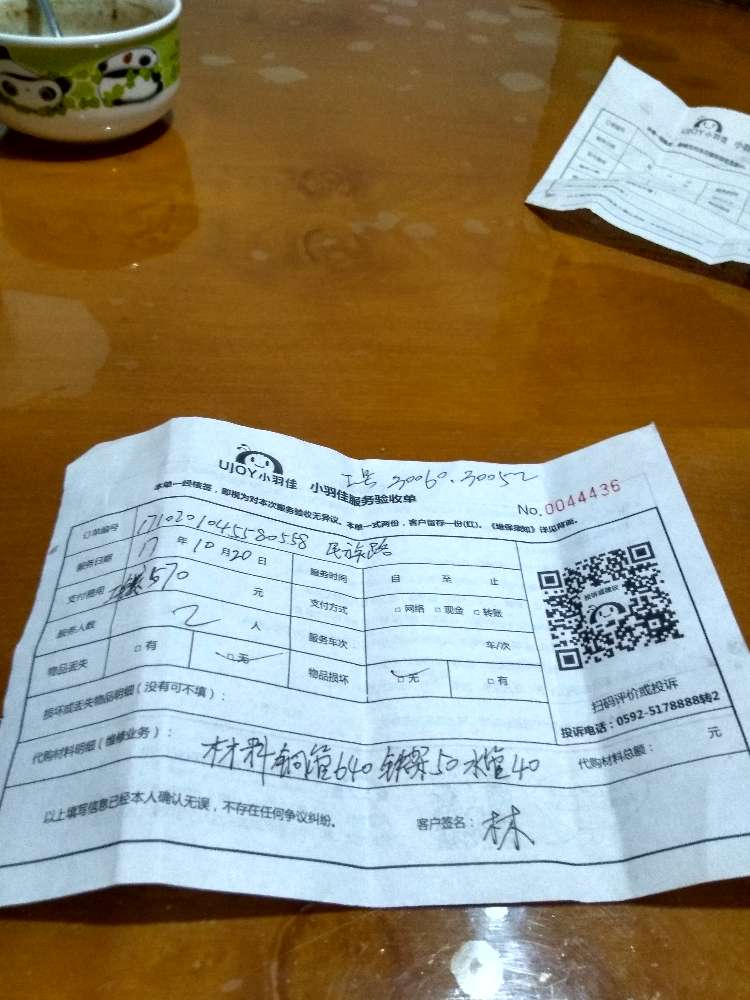 UJOY小羽佳 小
UJOY小羽佳 小羽佳服务验收单 工号 30060.30052
本单一经核签，即视为对本次服务验收无异议。本单一式两份，客户留存一份(红)。《维保须知》详见背面。
No.0044436
订单编号 1710201045580558 民族路
服务日期 17 年 10 月 20 日 服务时间 自 至 止
支付费用 570 元 支付方式 □ 网络 □ 现金 □ 转账
服务人数 2 人 服务车次 车/次
物品丢失 □ 有 □ 无 物品损坏 □ 无 □ 有
投诉或建议
扫码评价或投诉
投诉电话：0592-5178888转2
损坏或丢失物品明细（没有可不填）：
代购材料明细（维修业务）： 材料 铜管640 铁架50 水管40 代购材料总额： 元
以上填写信息已经本人确认无误，不存在任何争议纠纷。 客户签名： 林